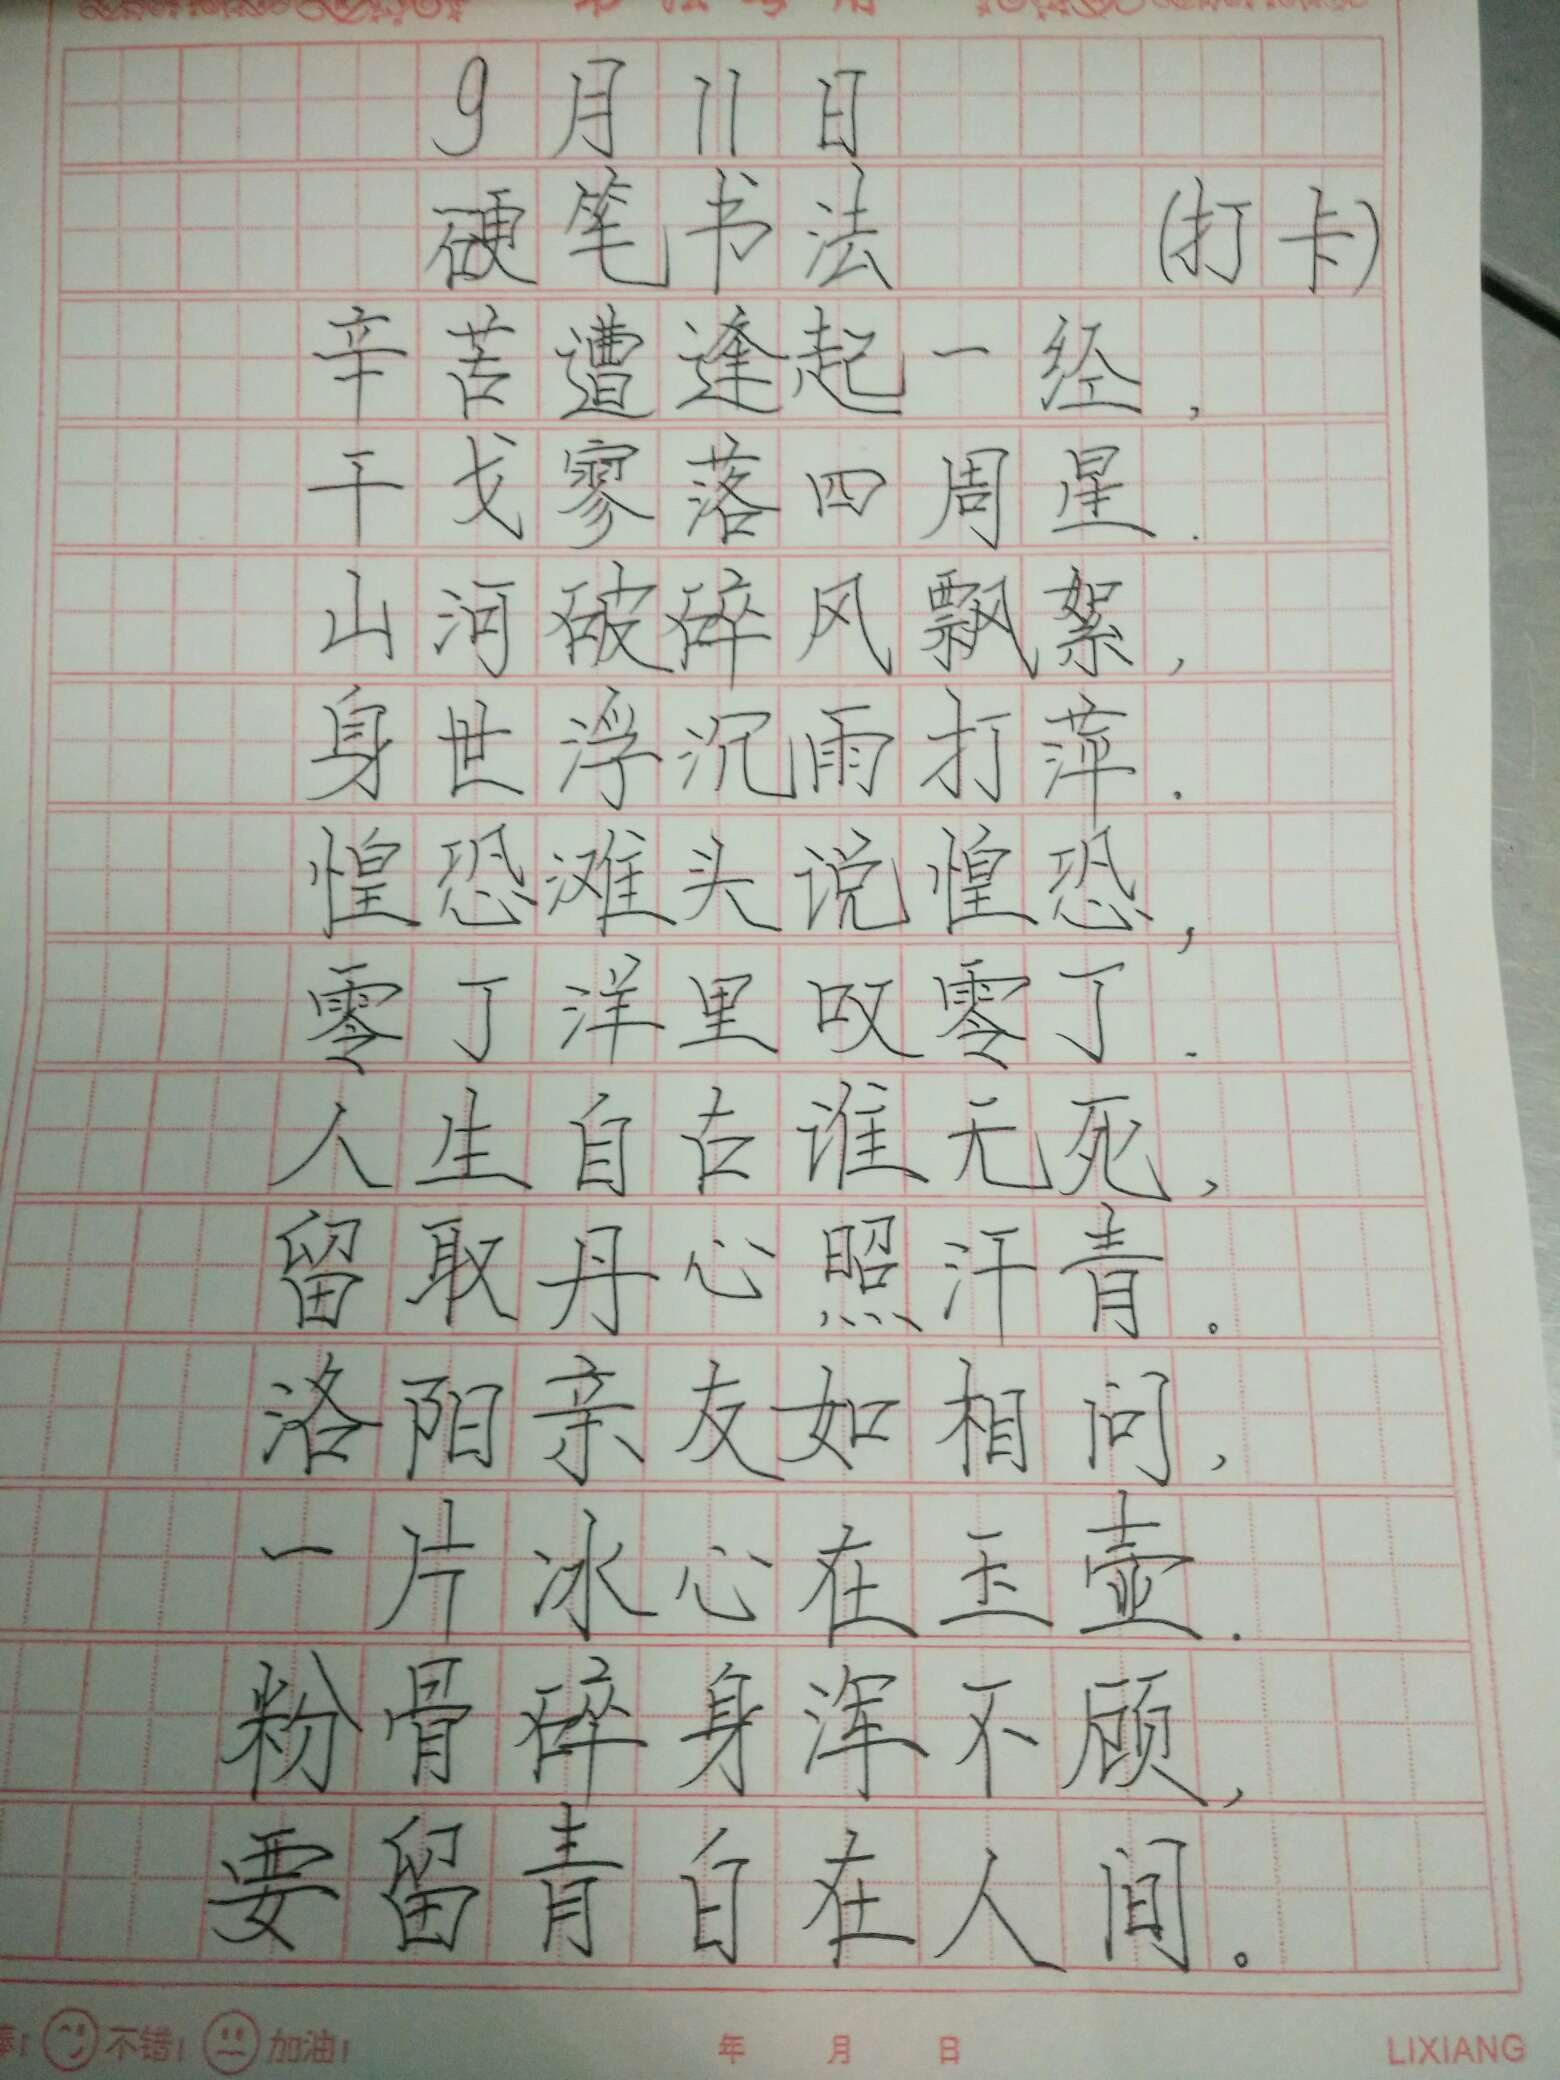 9月11日
硬笔书法 (打卡)
辛苦遭逢起一经,
干戈寥落四周星.
山河破碎风飘絮,
身世浮沉雨打萍.
惶恐滩头说惶恐,
零丁洋里叹零丁.
人生自古谁无死,
留取丹心照汗青.
洛阳亲友如相问,
一片冰心在玉壶.
粉骨碎身浑不顾,
要留青白在人间。
不错! 加油! 年 月 日 LIXIANG